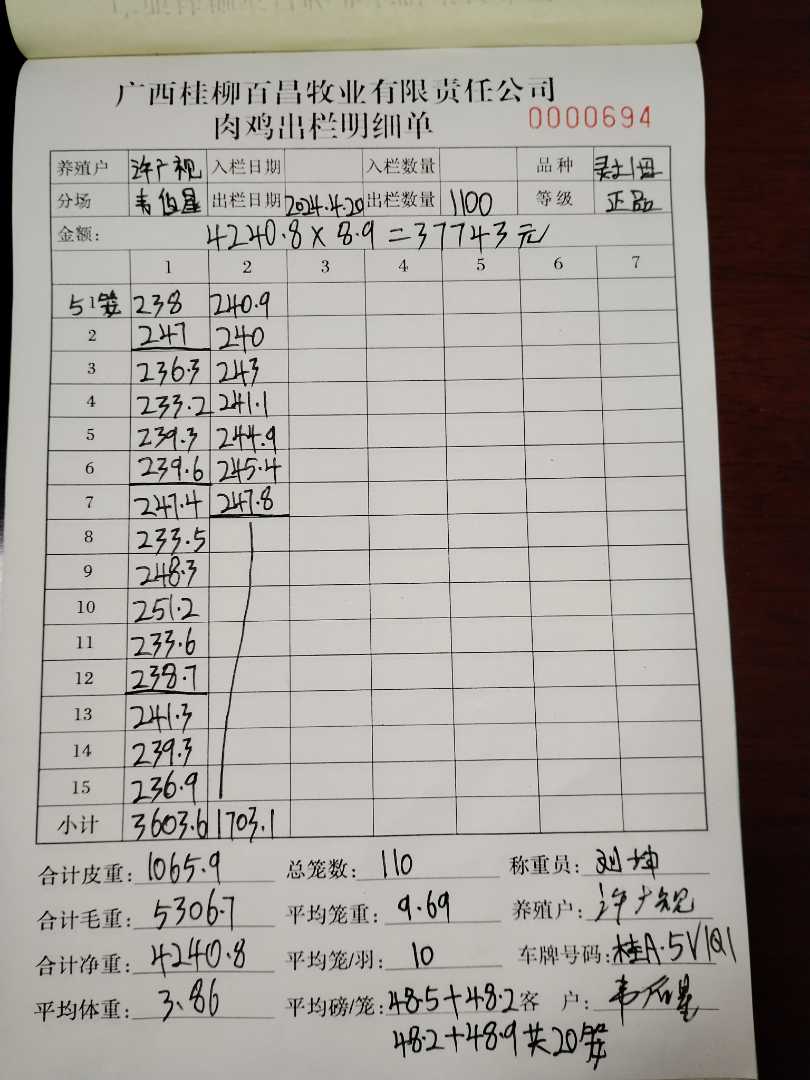 广西桂柳百昌牧业有限责任公司
肉鸡出栏明细单 0000694
养殖户 许广视 入栏日期 入栏数量 品种
分场 韦后星 出栏日期 2024.4.20 出栏数量 1100 等级 正品
金额: 4240.8×8.9=37743元
1 2 3 4 5 6 7
5 1笼 238 240.9
2 247 240
3 236.3 243
4 233.2 241.1
5 239.3 244.9
6 239.6 245.4
7 247.4 247.8
8 233.5
9 248.3
10 251.2
11 233.6
12 238.7
13 241.3
14 239.3
15 236.9
小计 3603.6 1703.1
合计皮重: 1065.9 总笼数: 110 称重员: 刘坤
合计毛重: 5306.7 平均笼重: 9.69 养殖户: 许广视
合计净重: 4240.8 平均笼/羽: 10 车牌号码: 桂A·5V1Q1
平均体重: 3.86 平均磅/笼: 48.5+48.2 客 户: 韦后星
48.2+48.9共20笼